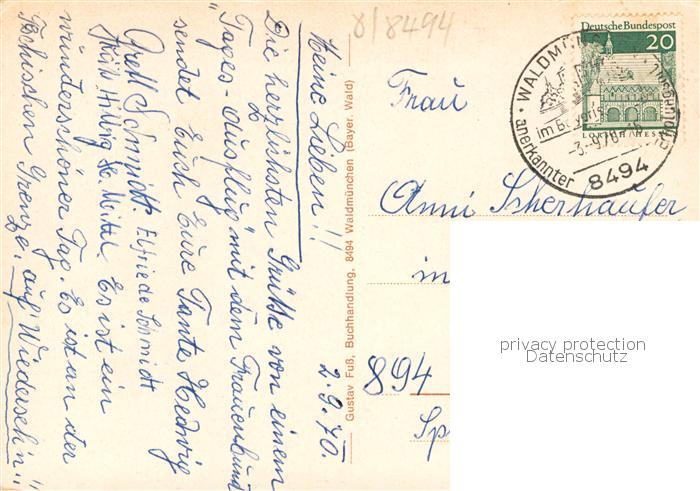 8/8494
Meine Lieben!!
Die herzlichsten Grüße von einem
"Tages-Ausflug" mit dem Frauenbund
sendet Euch Eure Tante Hedwig
Gretl Schmidt. Elfriede Schmidt
Es ist ein
wunderschöner Tag. Es ist an der
Tschischen Grenze. "auf Wiederseh'n"
2.9.70.
Gustav Fuß, Buchhandlung, 8494 Waldmünchen (Bayer. Wald)
Deutsche Bundespost
20
LORSCH/HESSEN
WALDMÜN
im Bayer
-3.-9.70
anerkannter
8494
Frau
Anni Scherhaufer
in
894
Sp
privacy protection
Datenschutz